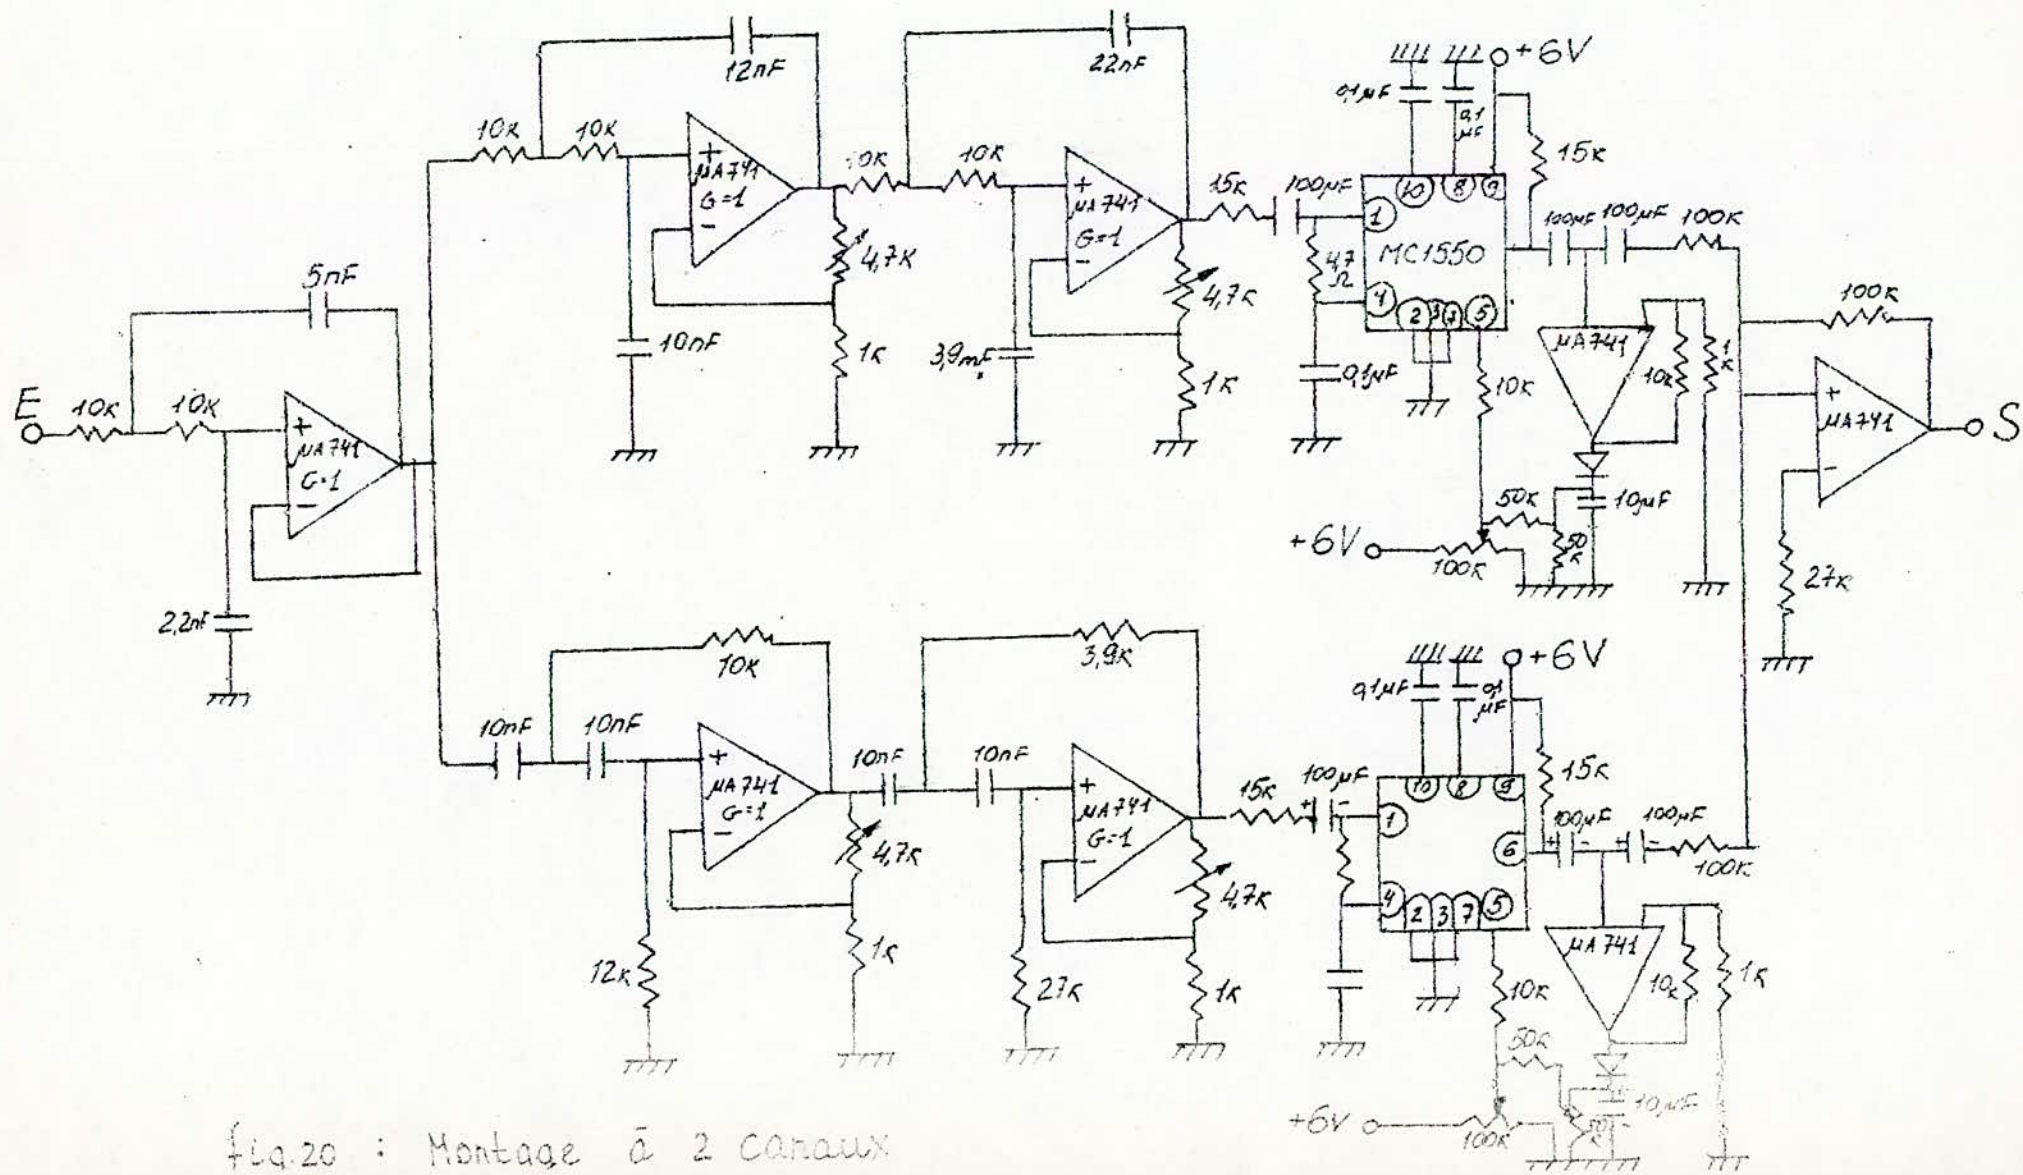 E
10K
10K
5nF
µA741
G=1
2,2nF
10K
10K
12nF
µA741
G=1
10nF
4,7K
1K
10K
10K
22nF
µA741
G=1
3,9nF
4,7K
1K
15K
100µF
47
Ω
0,1µF
0,1µF
0,1
µF
+6V
15K
MC1550
1
10
8
9
4
2
3
7
5
10K
100µF
100µF
100K
µA741
10K
1
K
10µF
50K
50
K
+6V
100K
100K
µA741
27K
S
10nF
10nF
10K
µA741
G=1
12K
4,7K
1K
10nF
10nF
3,9K
µA741
G=1
27K
4,7K
1K
15K
100µF
0,1µF
0,1
µF
+6V
15K
1
10
8
9
6
4
2
3
7
5
100µF
100µF
100K
µA741
10K
1K
10K
50K
10µF
+6V
100K
fig.20 : Montage à 2 canaux